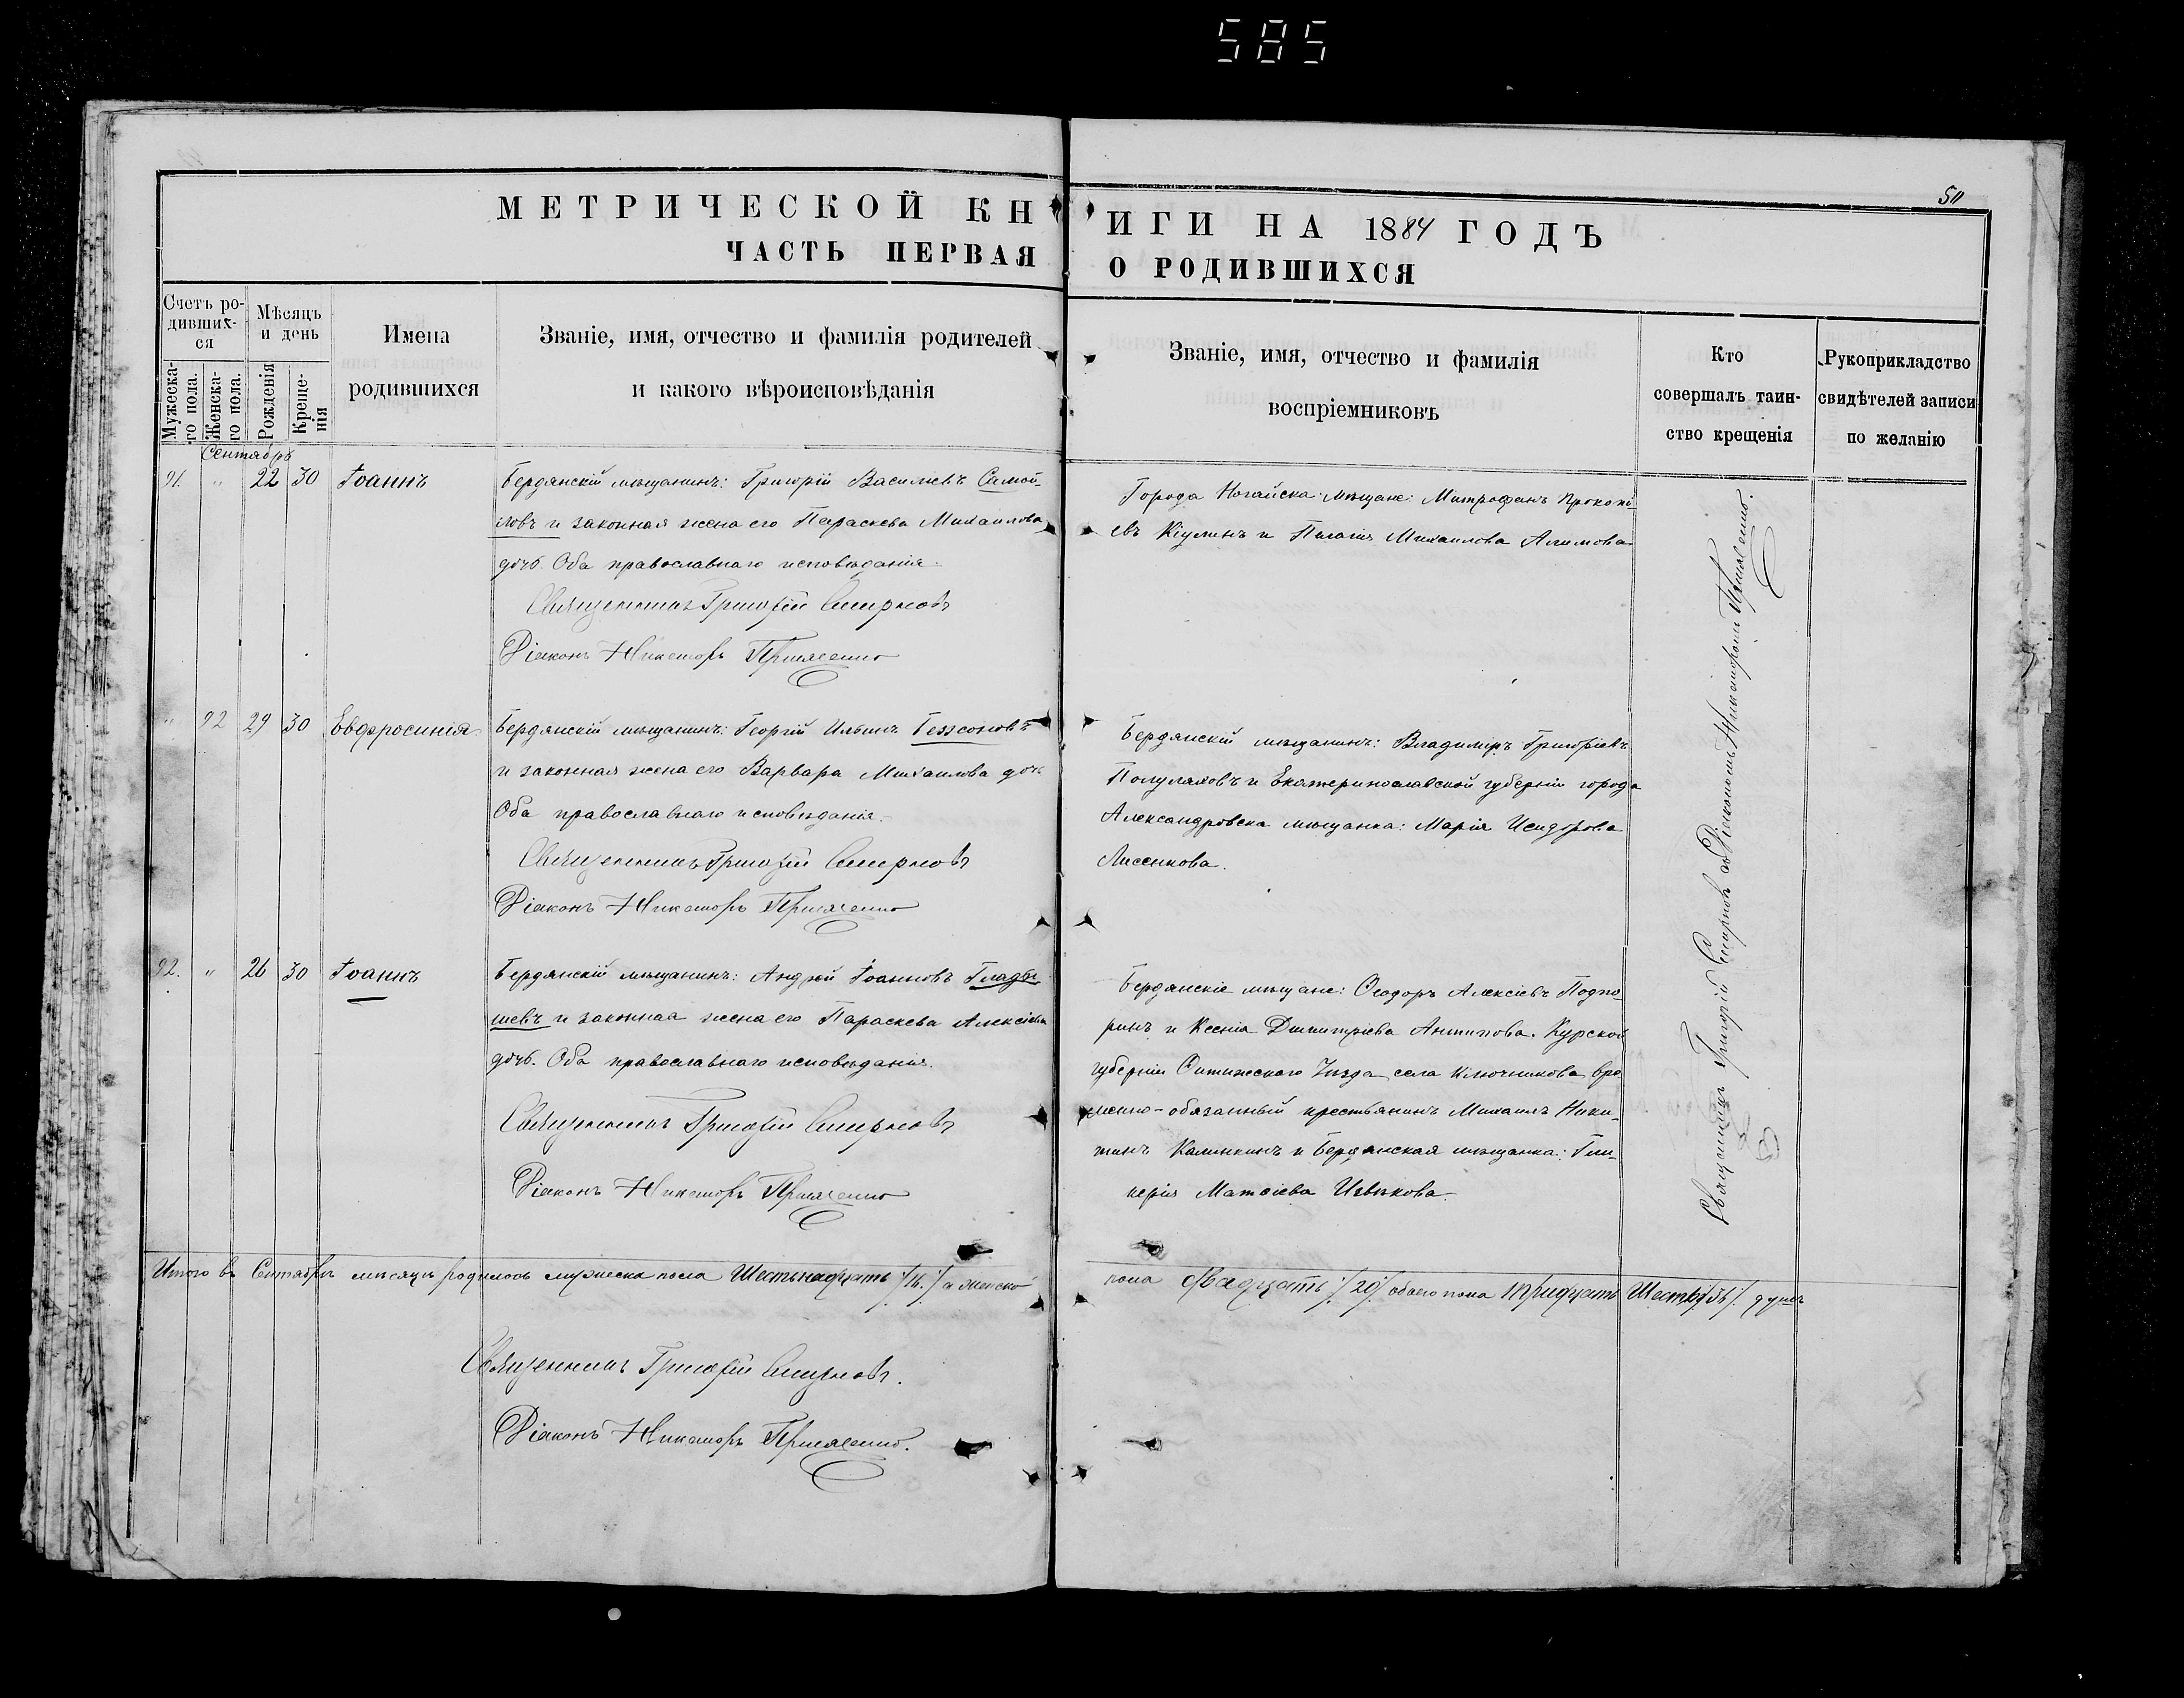 585
50
МЕТРИЧЕСКОЙ КНИГИ НА 1884 ГОДЪ
ЧАСТЬ ПЕРВАЯ О РОДИВШИХСЯ
Счетъ ро-
дивших-
ся
Мужеска-
го пола.
Женска-
го пола.
Мѣсяцъ
и день
Рожденія
Креще-
нія
Имена
родившихся
Званіе, имя, отчество и фамилія родителей
и какого вѣроисповѣданія
Званіе, имя, отчество и фамилія
воспріемниковъ
Кто
совершалъ таин-
ство крещенія
Рукоприкладство
свидѣтелей записи
по желанію
Сентябрь
91. " 22 30 Іоаннъ
Бердянскій мѣщанинъ: Григорій Василіевъ Самой-
ловъ и законная жена его Параскева Михаилова
дочь. Оба православнаго исповѣданія.
Священникъ Григорій Смирновъ
Діаконъ Никаноръ
Города Ногайска мѣщане: Митрофанъ Прокопі-
евъ и Пелагія Михаилова Алимова
" 92 29 30 Евфросинія
Бердянскій мѣщанинъ: Георгій Ильинъ
и законная жена его Варвара Михаилова дочь
Оба православнаго исповѣданія.
Священникъ Григорій Смирновъ
Діаконъ Никаноръ
Бердянскій мѣщанинъ: Владиміръ Григоріевъ
и Екатеринославской губерніи города
Александровска мѣщанка: Марія Исидорова
Лисенкова.
92. " 26 30 Іоаннъ
Бердянскій мѣщанинъ: Андрей Іоанновъ Глады-
шевъ и законная жена его Параскева Алексіева
дочь. Оба православнаго исповѣданія.
Священникъ Григорій Смирновъ
Діаконъ Никаноръ
Бердянскіе мѣщане: Ѳеодоръ Алексіевъ
и Ксенія Димитріева Антипова. Курской
губерніи уѣзда села Ключникова вре-
менно-обязанный крестьянинъ Михаилъ Ники-
тинъ Калинкинъ и Бердянская мѣщанка: Гли-
керія Матѳіева
Священникъ Григорій Смирновъ съ Діакономъ Никаноромъ
Итого въ Сентябрѣ мѣсяцѣ родилось мужеска пола Шестьнадцать /16/ а женска
пола двадцать /20/ обаего пола тридцать Шесть /36/ душъ
Священникъ Григорій Смирновъ.
Діаконъ Никаноръ